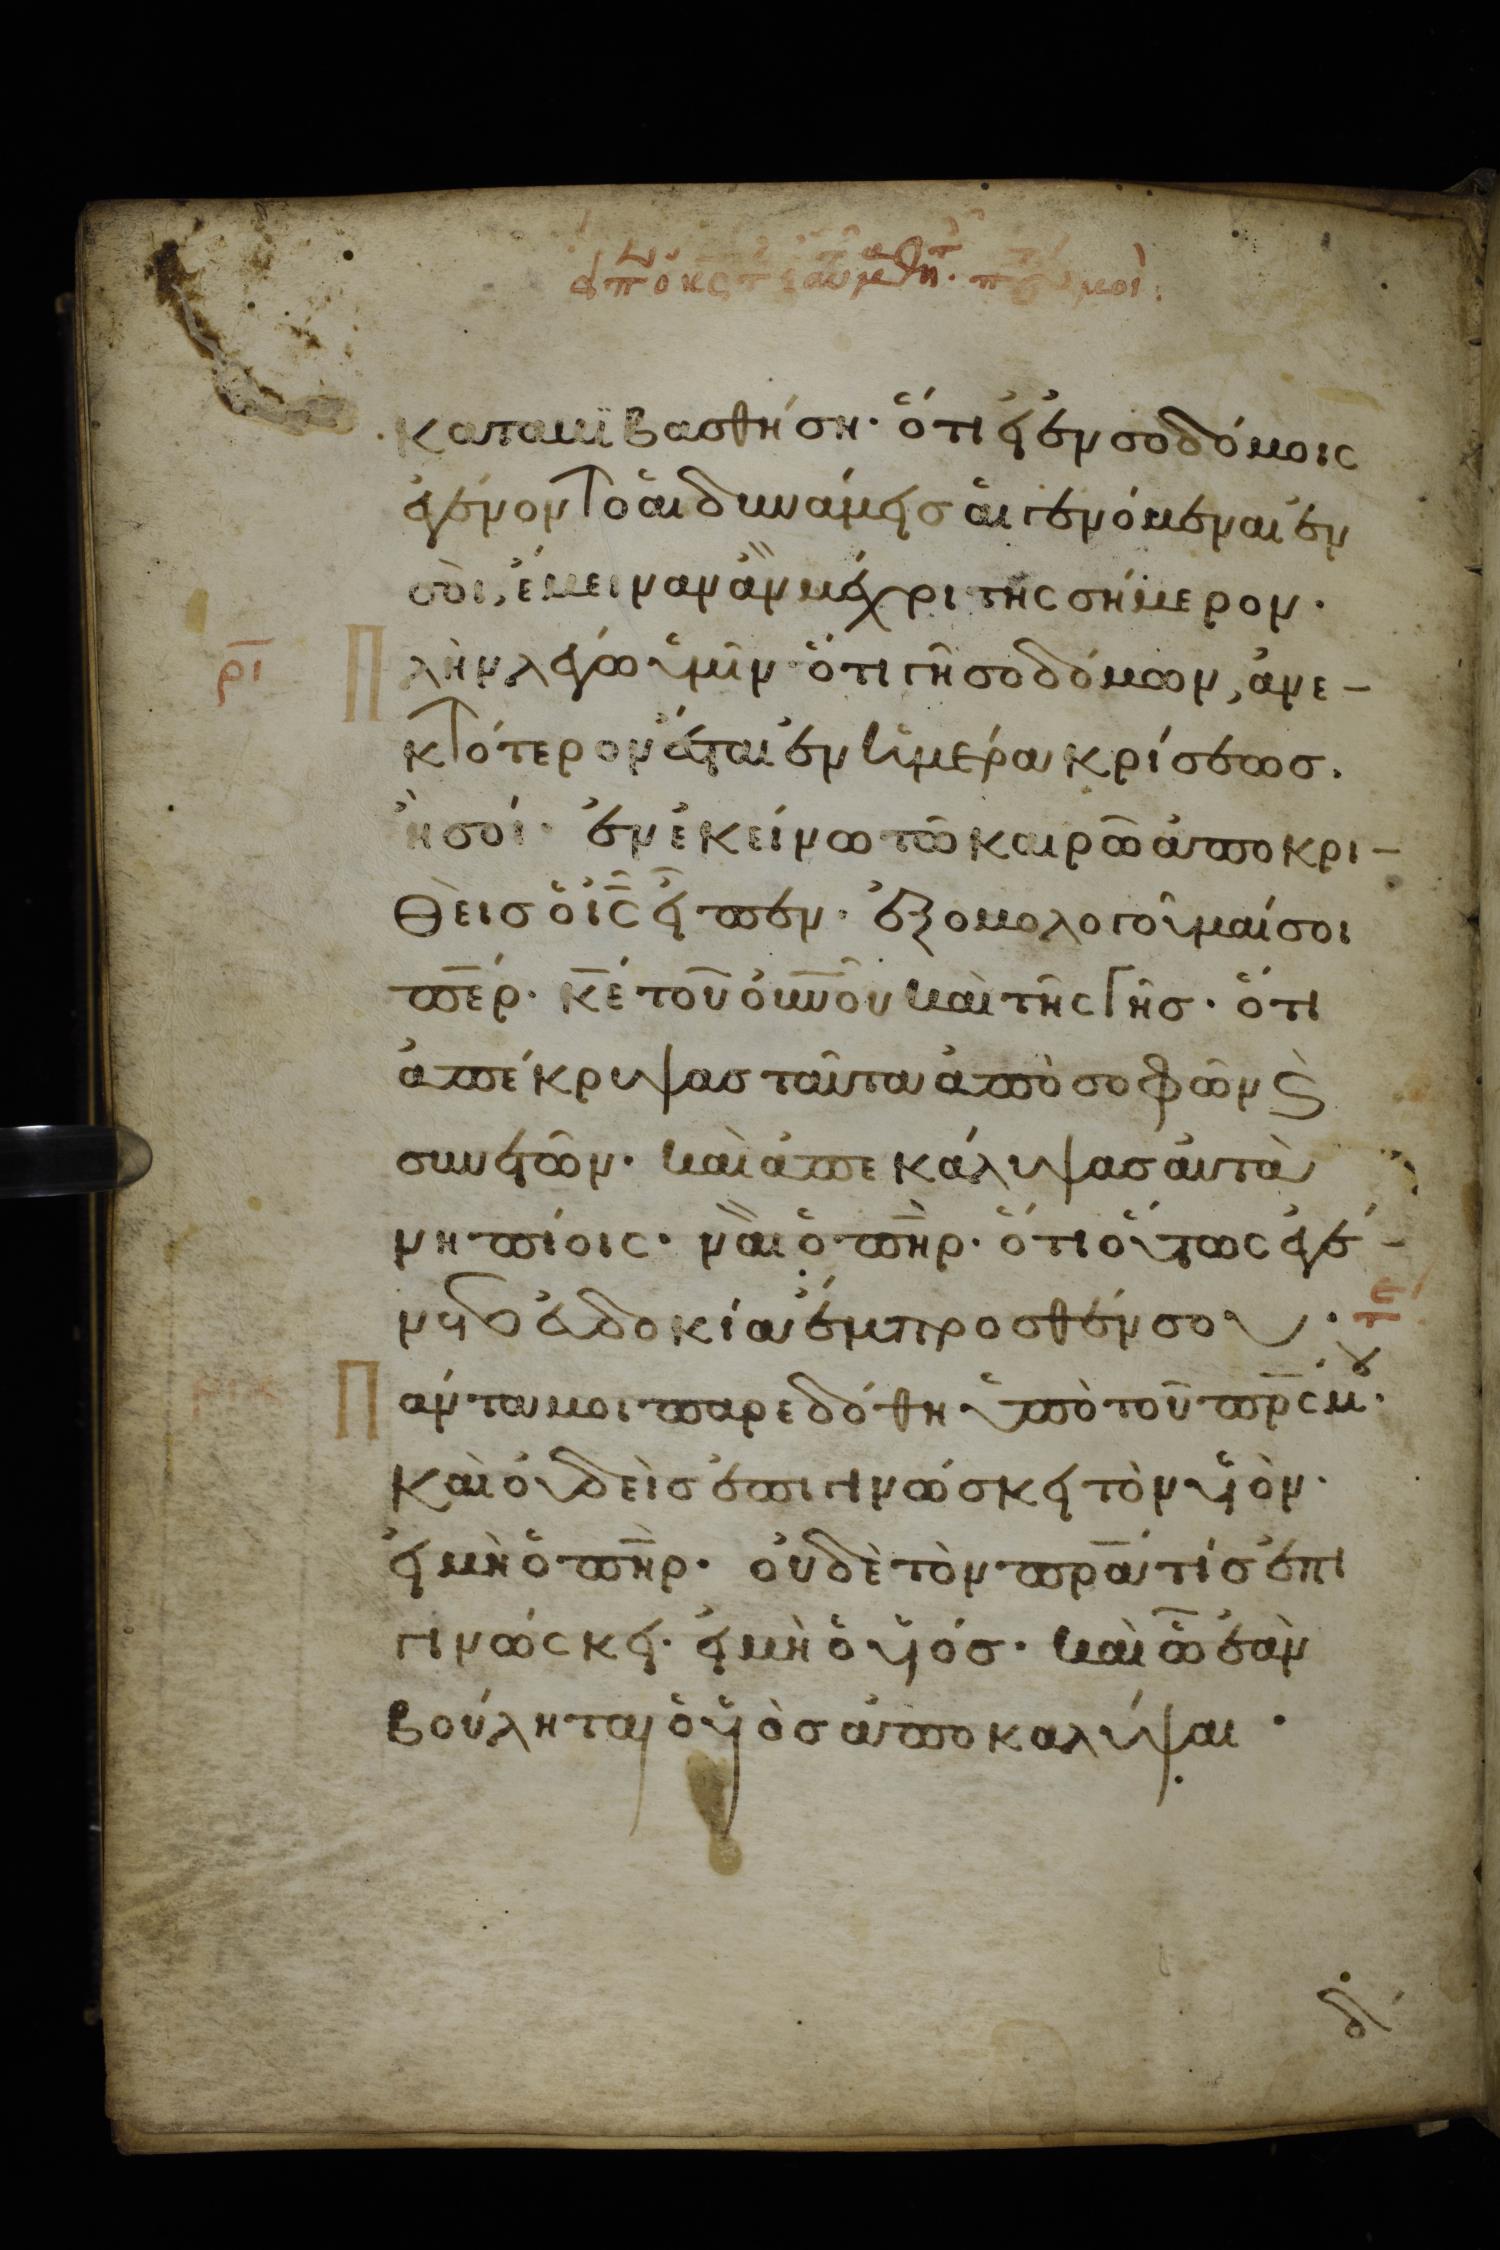 καταιβιβασθήση· ὅτι εἰ ἐν σοδόμοις
ἐγένοντο αἱ δυνάμεις αἱ γενόμεναι ἐν
σοὶ, ἔμειναν ἂν μέχρι τῆς σήμερον·
ρι Πλὴν λέγω ὑμῖν ὅτι γῆ σοδόμων, ἀνε-
κτότερον ἔσται ἐν ἡμέρα κρίσεως.
ἢ σοί· ἐν ἐκείνω τῶ καιρῶ ἀποκρι-
θεὶς ὁ ις εἶπεν· ἐξομολογοῦμαί σοι
περ· κε τοῦ οὐνοῦ καὶ τῆς γῆς· ὅτι
ἀπέκρυψας ταῦτα ἀπὸ σοφῶν ϛ
συνετῶν· καὶ ἀπεκάλυψας αὐτὰ
νηπίοις· ναὶ ὁ πηρ· ὅτι οὕτως ἐγέ-
νετο εὐδοκία ἔμπροσθέν σου·
Πάντα μοι παρεδόθη ὑπὸ τοῦ πρς μου·
Καὶ οὐδεὶς ἐπιγινώσκει τὸν υἱὸν·
εἰ μὴ ὁ πηρ· οὐδὲ τὸν πρα τίς ἐπι
γινώσκει· εἰ μὴ ὁ υἱός· καὶ ὧ ἐὰν
βούληται ὁ υἱὸς ἀποκαλύψαι·